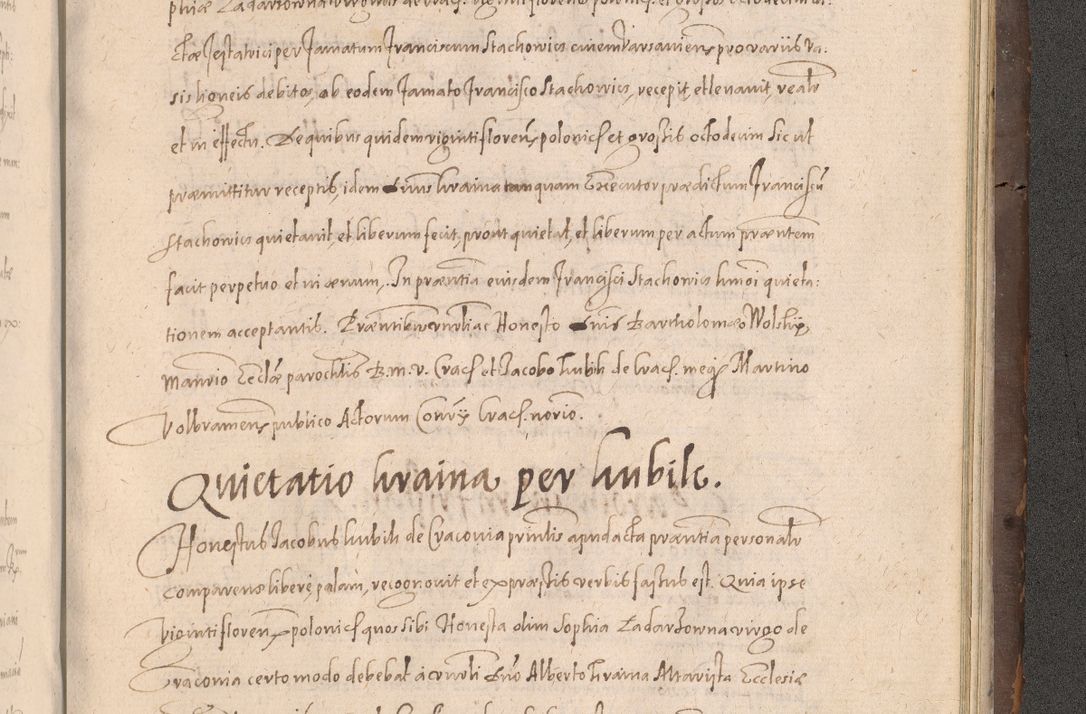 ctæ testatrici per famatum Franciscum Stachowicz civem Varsaviens pro variis va:
sis stoneis debitos, ab eodem famato Francisco Stachowicz, recepit, et levavit, realr
et in effectu. De quibus quidem viginti florens polonicf et grossis octodecim sic ut
præmittitur receptis, idem Dnus Kraina tanquam Executor prædictum Franciscū
Stachowicz quietavit, et liberum fecit, prout quietat, et liberum per actum præntem
facit perpetuo et in ævum. In præntia eiusdem Francisci Stachowicz hmoi quieta:
tionem acceptantis. Præntibus Honesto Dnis Bartholomæo Wolski
Manrio Eccliæ parochlis B. m. v. Cracf et Jacobo Kubik de Cracf. Martino
Wolbramens publico Actorum Cracf. norio.
Quietatio Kraina per Kubik.
Honestus Jacobus Kubik de Cracovia prinlis apud acta præntia personalr
comparens libere, palam, recognovit et expræssis verbis fassus est. Quia ipse
viginti florens polonicf quos sibi Honesta olim Sophia Ladarzowna virgo de
Cracovia certo modo debebat a Dno Alberto Kraina Altarista Ecclesiæ